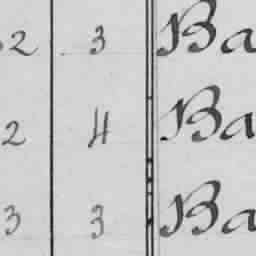 2 3 Ba
2 4 Ba
3 3 Ba